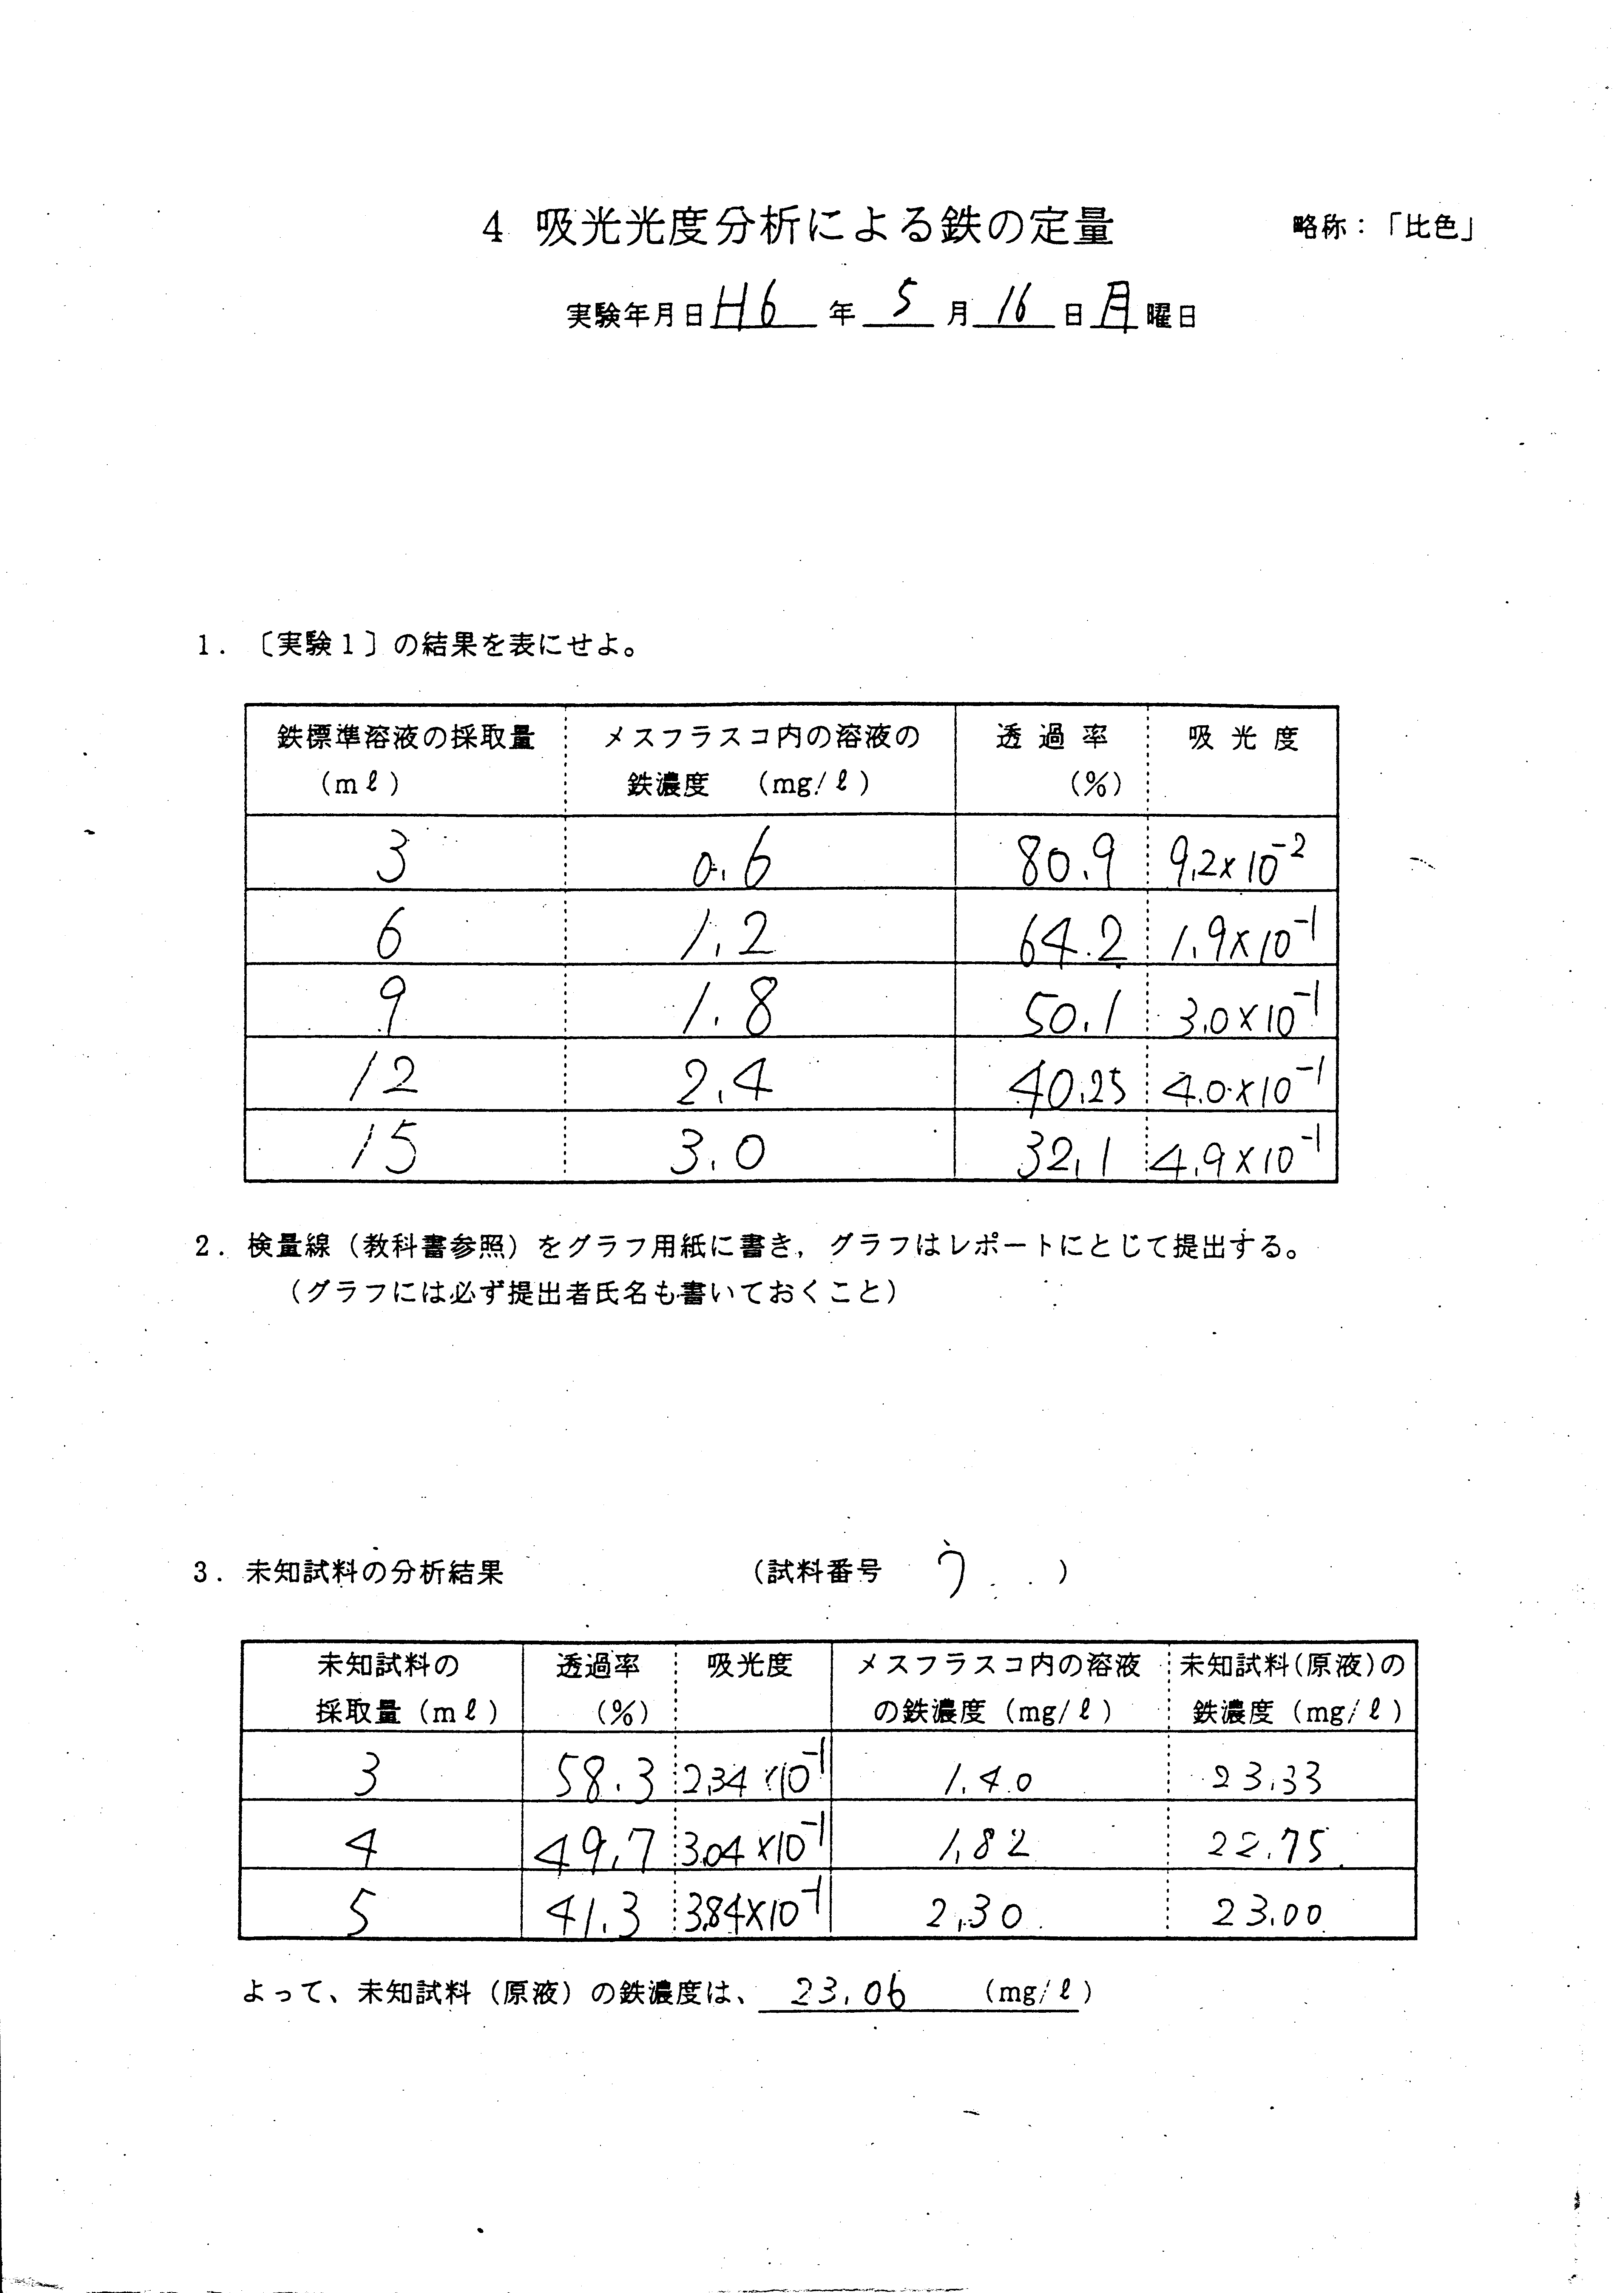 4 吸光光度分析による鉄の定量 略称：「比色」
実験年月日 H6 年 5 月 16 日 月 曜日
1．〔実験1〕の結果を表にせよ。
鉄標準溶液の採取量 メスフラスコ内の溶液の 透過率 吸光度
（mℓ） 鉄濃度 （mg/ℓ） （%）
3 0.6 80.9 9.2×10⁻²
6 1.2 64.2 1.9×10⁻¹
9 1.8 50.1 3.0×10⁻¹
12 2.4 40.25 4.0×10⁻¹
15 3.0 32.1 4.9×10⁻¹
2．検量線（教科書参照）をグラフ用紙に書き，グラフはレポートにとじて提出する。
（グラフには必ず提出者氏名も書いておくこと）
3．未知試料の分析結果 （試料番号 う ）
未知試料の 透過率 吸光度 メスフラスコ内の溶液 未知試料（原液）の
採取量（mℓ） （%） の鉄濃度（mg/ℓ） 鉄濃度（mg/ℓ）
3 58.3 2.34×10⁻¹ 1.40 23.33
4 49.7 3.04×10⁻¹ 1.82 22.75
5 41.3 3.84×10⁻¹ 2.30 23.00
よって、未知試料（原液）の鉄濃度は、 23.06 （mg/ℓ）